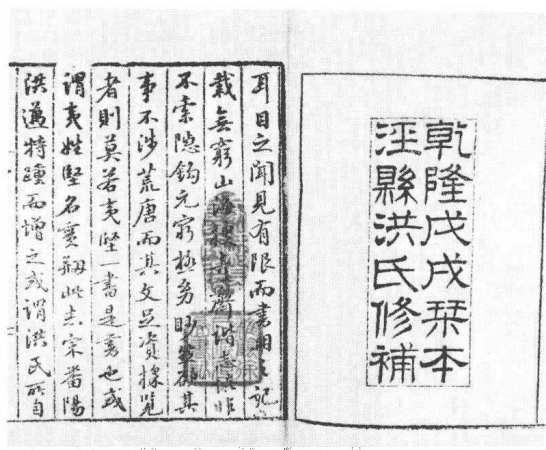 乾隆戊戌栞本
涇縣洪氏修補
耳目之聞見有限而書記
載無窮山海齊諧志怪非
不索隱鈎元窮極其
事不涉荒唐而其文足資採覽
者則莫若夷堅一書是書也或
謂夷姓堅名實刱此志宋番陽
洪邁特踵而增之或謂洪氏所自